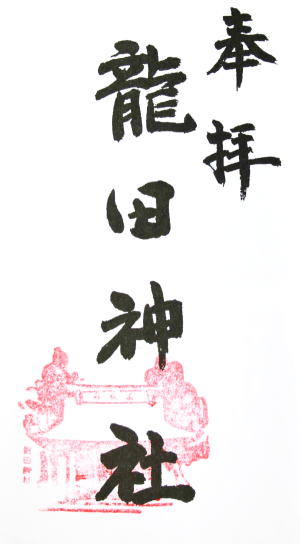 奉拝
龍田神社